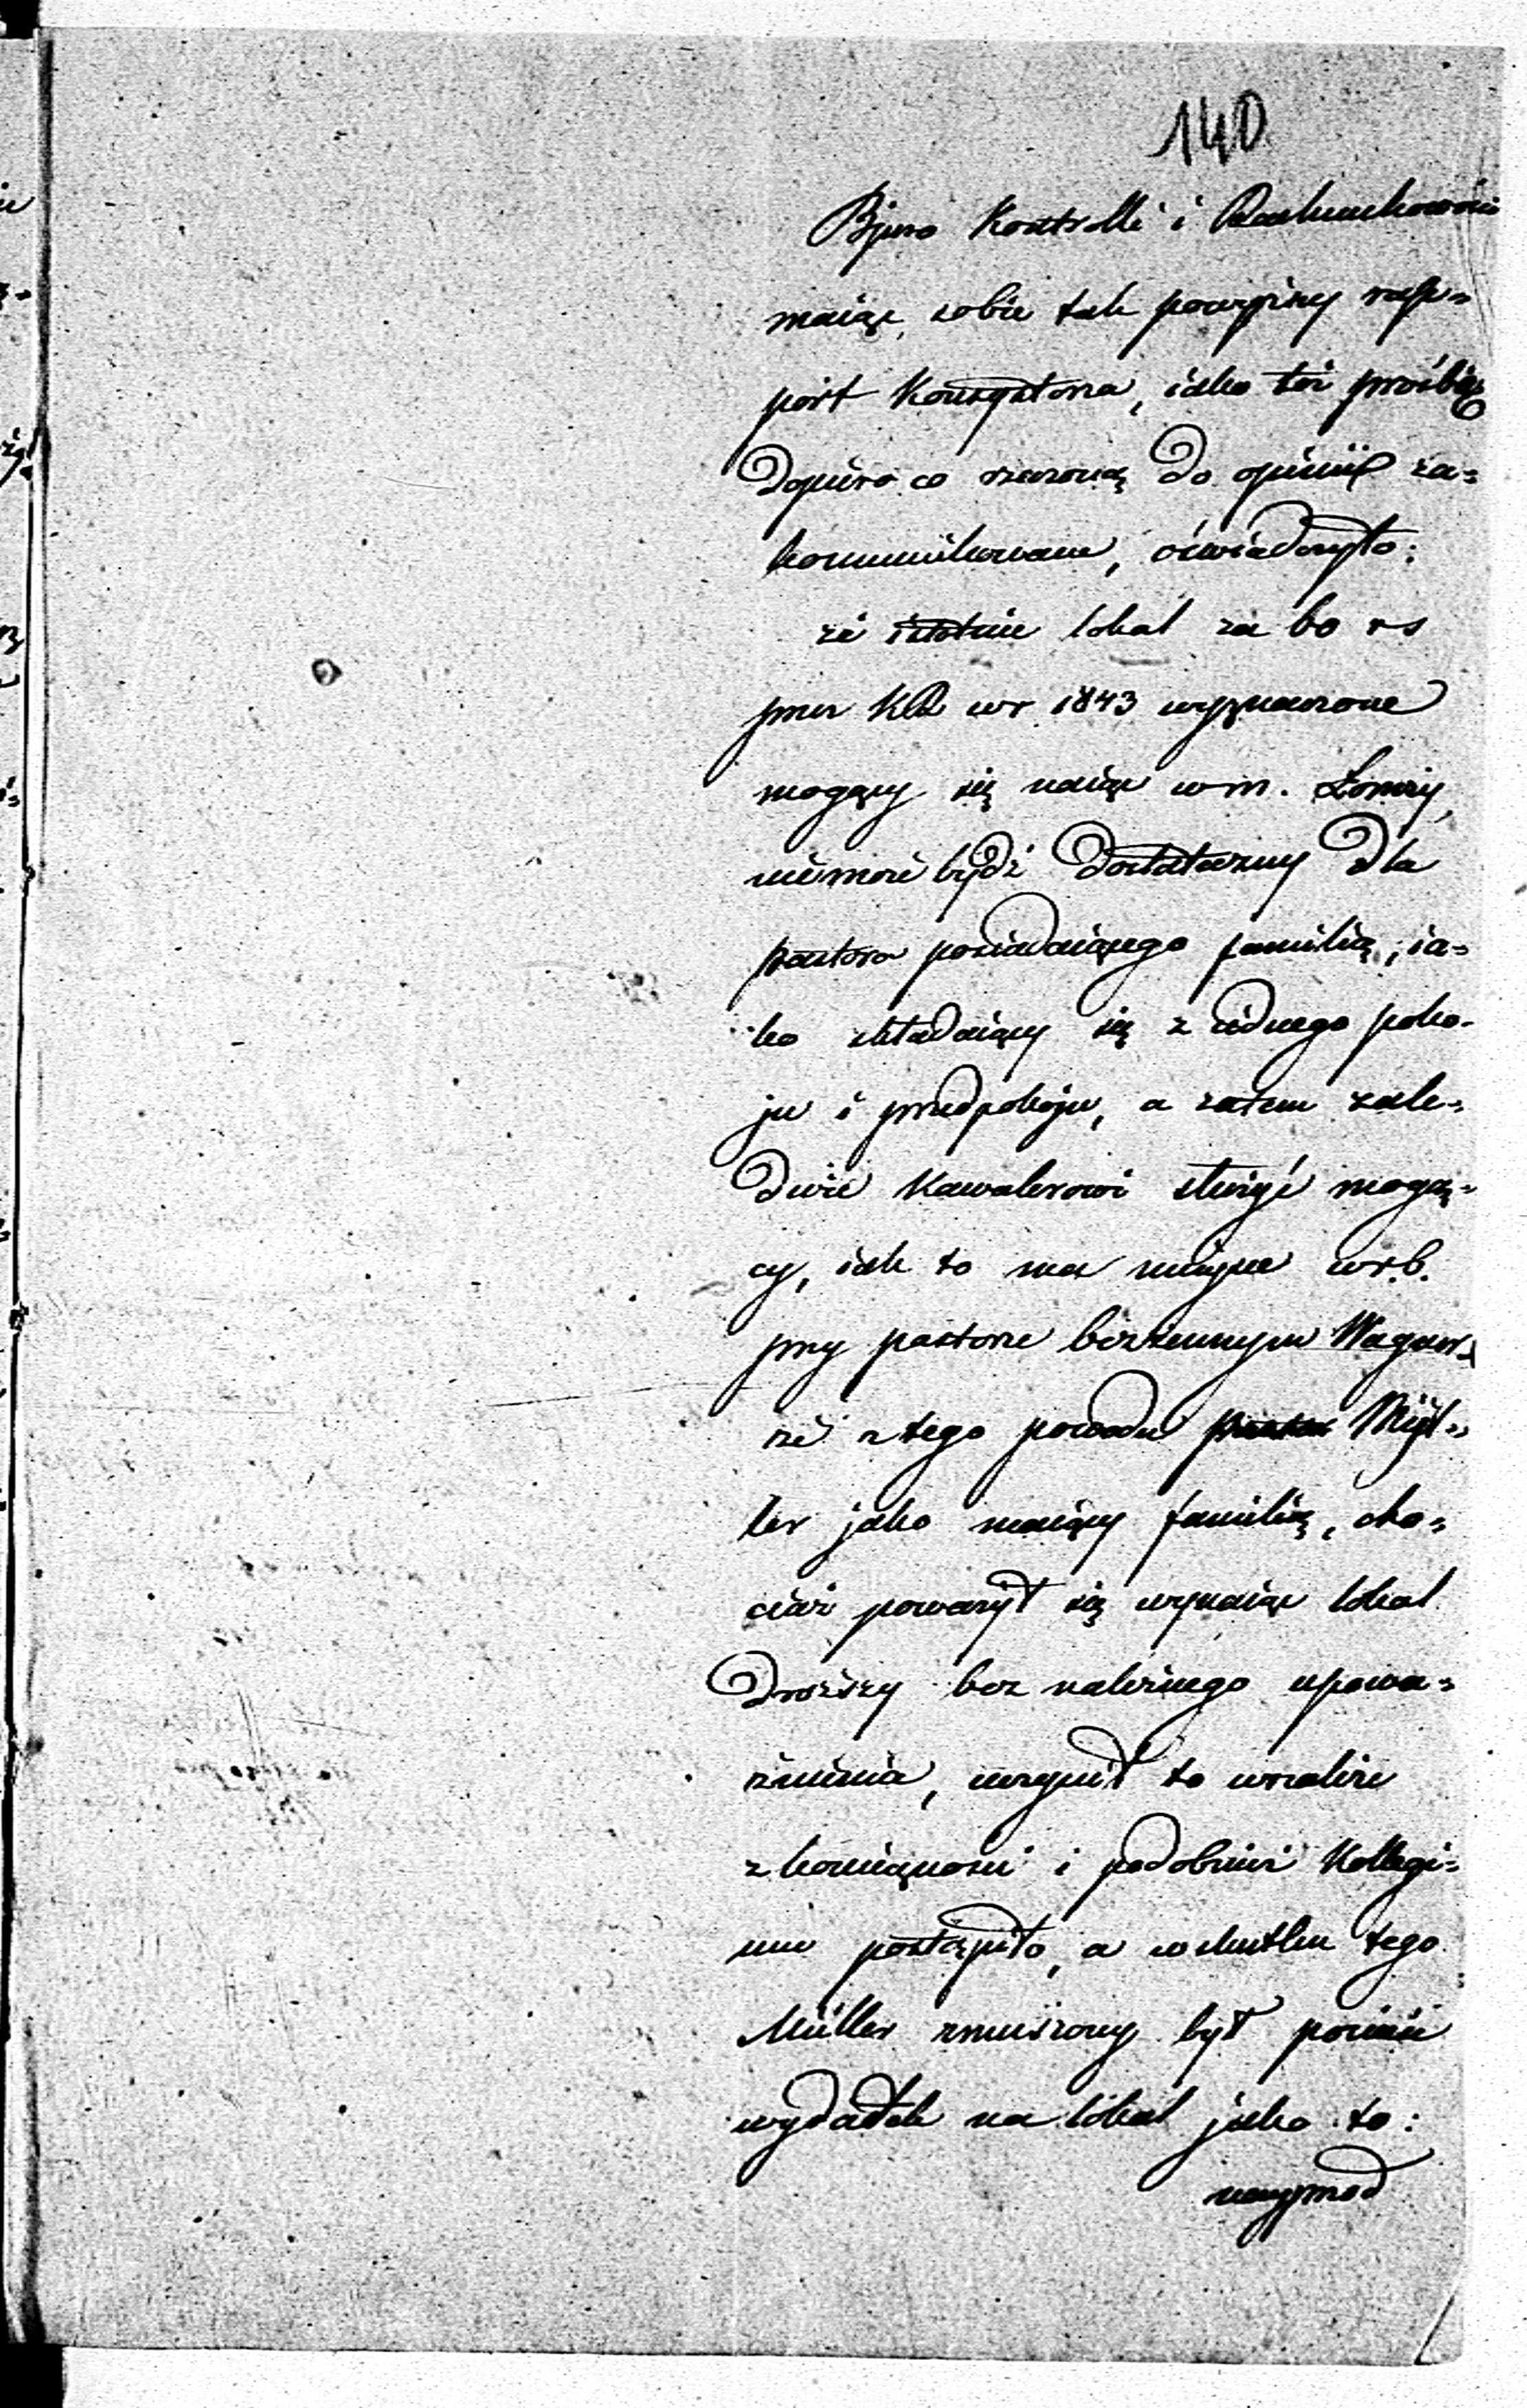 140
Bjuro Kontrolli i Rachunkowości
maiąc sobie tak powyższy rap=
port Konsystorza, iako też prośbę
Dopiero co rzeczoną do opinii za=
kommunikowane, oświadczyło:
że istotnie lokal za 60 rs
przez KR w r. 1843 wyznaczone
mogący się naiąć w m. Łomży,
niemoże bydź dostateczny dla
pastora posiadaiącego familią, ia=
ko składaiący się z iednego poko-
ju i przedpokoju, a zatem zale=
dwie kawalerowi służyć mogą=
cy, iak to ma mieysce w r. b.
przy pastorze bezżennym
że z tego powodu Myl=
ler jako maiący familią, cho=
ciaż poważył się wynaiąć lokal
droższy bez należnego upowa=
żnienia, uczynił to wszakże
z konieczności i podobnież Kollegi=
um postąpiło, a w skutku tego
Müller zmuszony był ponieść
wydatek na lokal jako to: